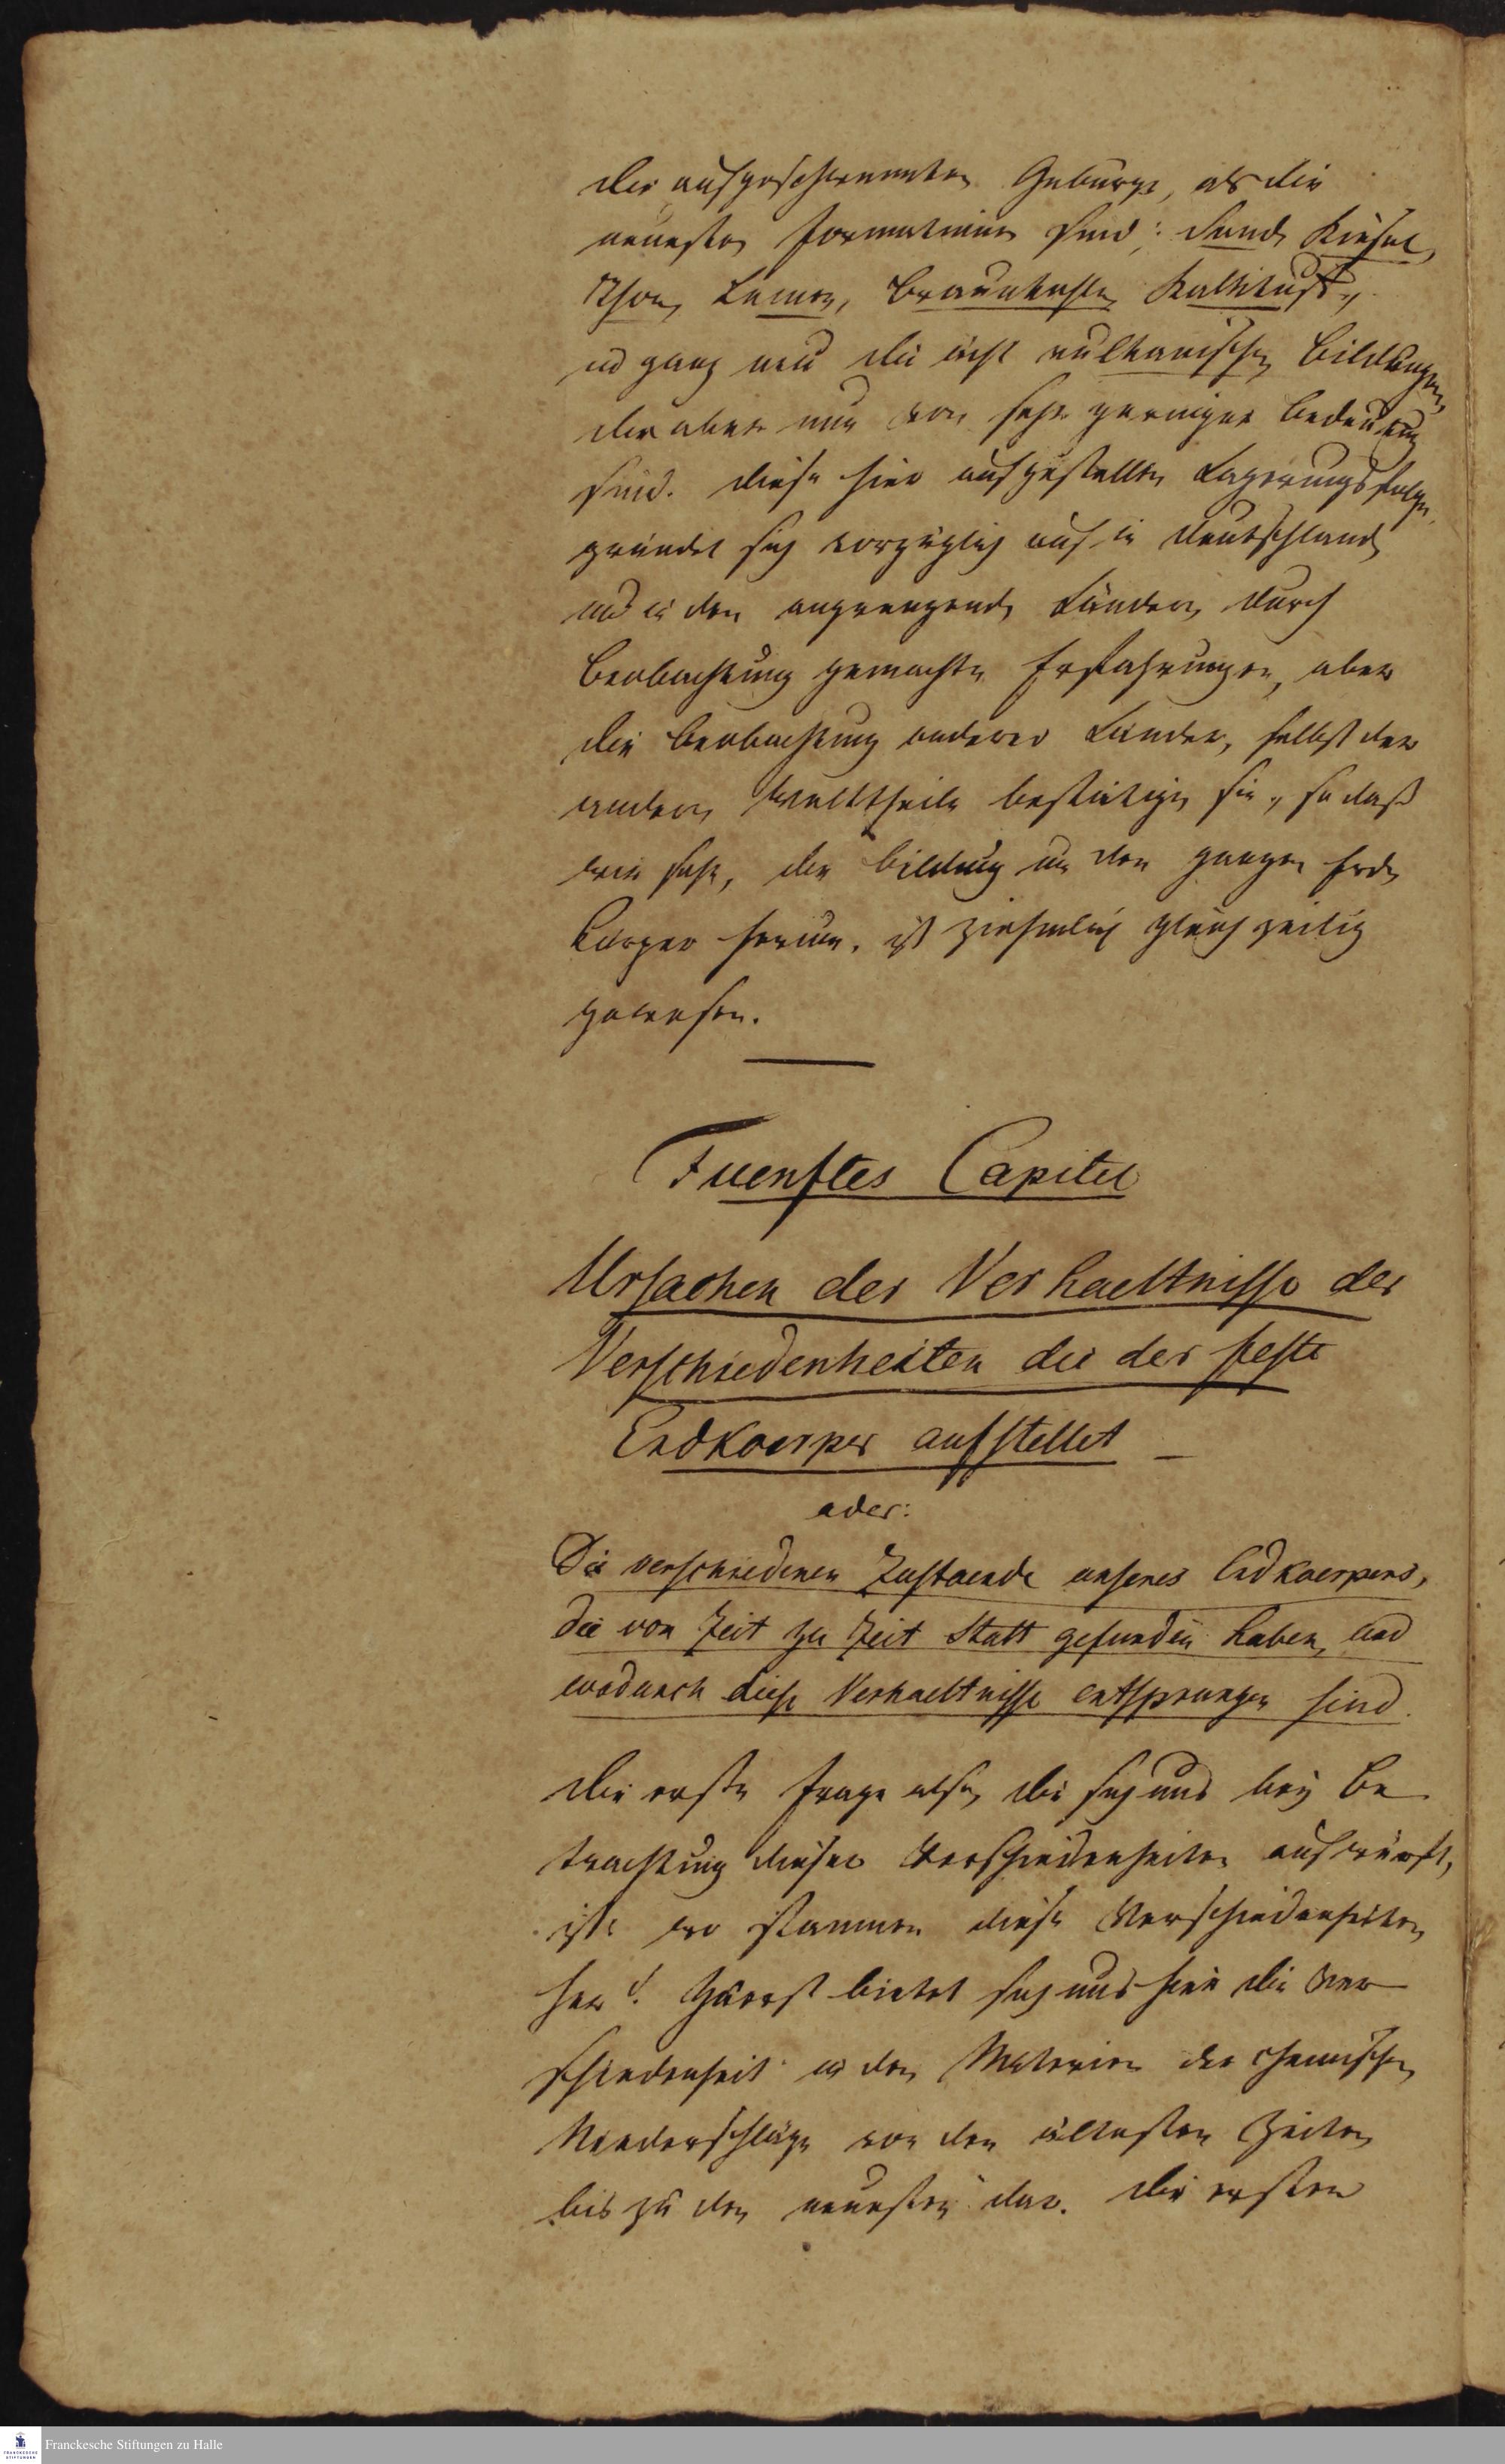 der aufgeschwemmten Gebürge, als die
neuesten Formationen sind: Sand, Kiesel,
Thon, Lemen, Braunkohle, Kalktuff,
und ganz neu die ächt vulkanischen Bildungen,
die aber nur von sehr geringer Bedeutung
sind. Diese hier aufgestellte Lagerungsfolge,
gründet sich vorzüglich auf in Deutschland
und in den angrenzenden Ländern durch
Beobachtung gemachte Erfahrungen, aber
die Beobachtung anderer Länder, selbst der
andern Welttheile bestätigen sie, so daß
wie sehr, die Bildung um den ganzen Erd
körper herum, ist ziehmlich gleichzeitig
gewesen.
Fuenftes Capitel
Ursachen der Verhaeltnisse der
Verschiedenheiten die der feste
Erdkoerper aufstellet
oder:
Die verschiedenen Zustaende unseres Erdkoerpers,
die von Zeit zu Zeit Statt gefunden haben, und
wodurch diese Verhaeltnisse entsprungen sind.
Die erste Frage also, die sich uns bey Be
trachtung dieser Verschiedenheiten aufwürft,
ist: wo stammen diese Verschiedenheiten
her? Zuerst bietet sich uns hier die Ver
schiedenheit in den Materien der chemischen
Niederschläge von den ältesten Zeiten
bis zu den neuesten dar. Die ersten
Franckesche Stiftungen zu Halle